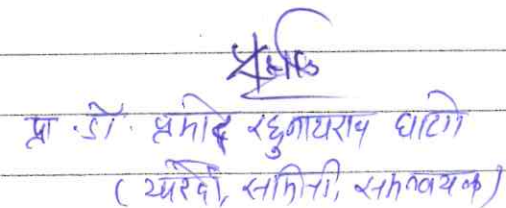 प्रा. डॉ. प्रमोद रघुनाथराव घाटगे
( स्पर्धा, समिती, समन्वयक)